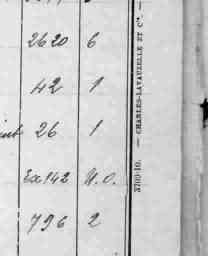 2620 6
42 1
26 1
Ex 142 N.O.
796 2
3700-10. — CHARLES-LAVAUZELLE ET Cie. —